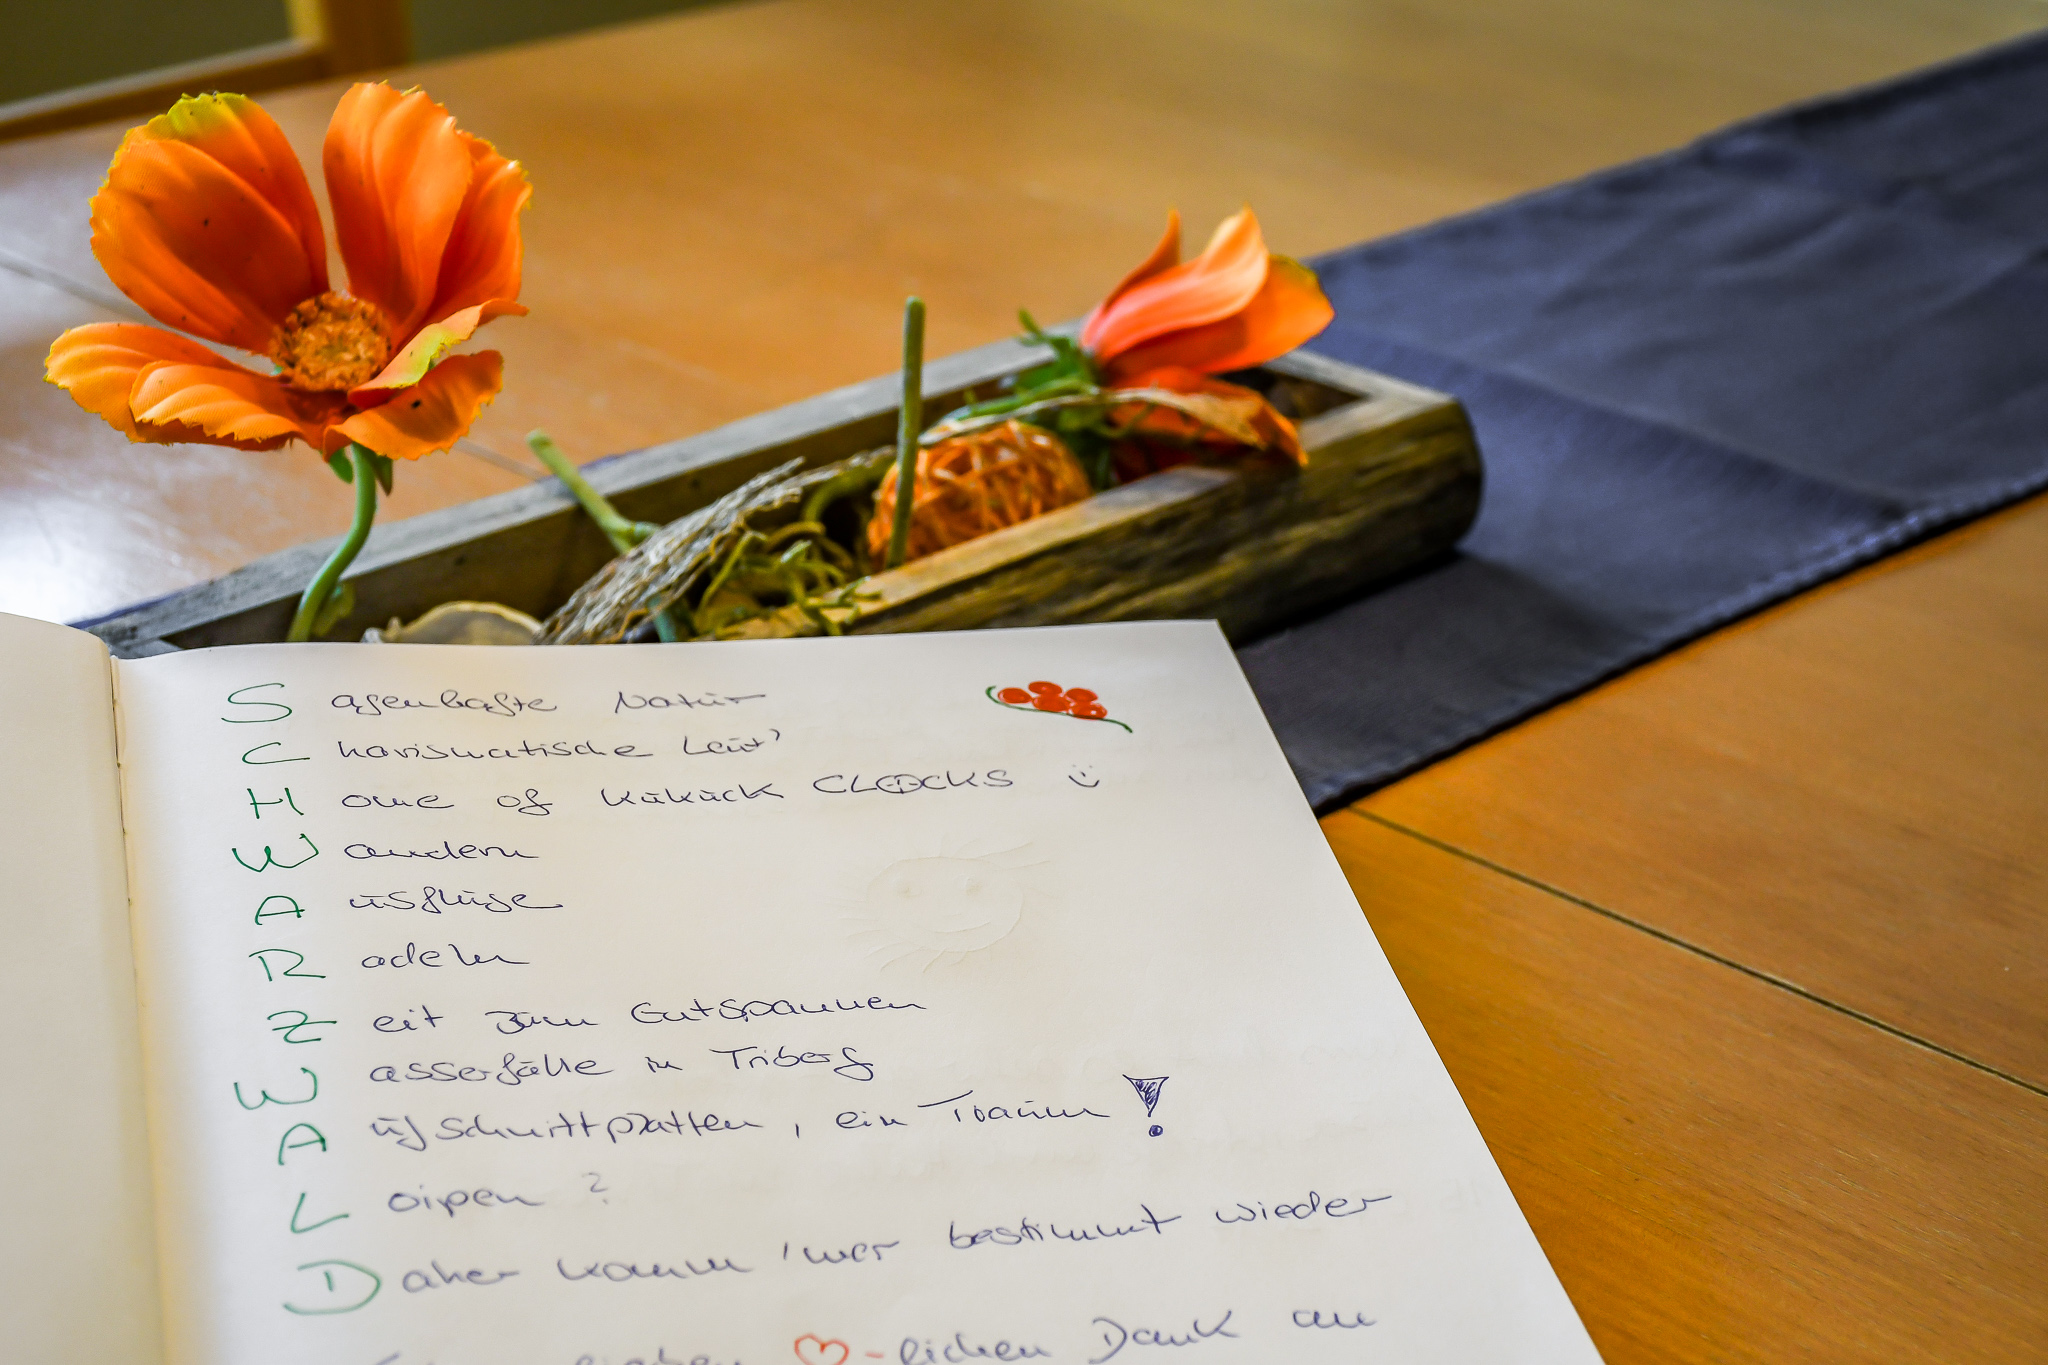 Sagenhafte Natur
Charismatische Leut'
Home of Kukuck CLOCKS
Wandern
Ausflüge
Radeln
Zeit zum Entspannen
Wasserfälle in Triberg
Aufschnittplatten, ein Traum!
Loipen?
Daher komm 'mer bestimmt wieder
lieben ♡-lichen Dank an